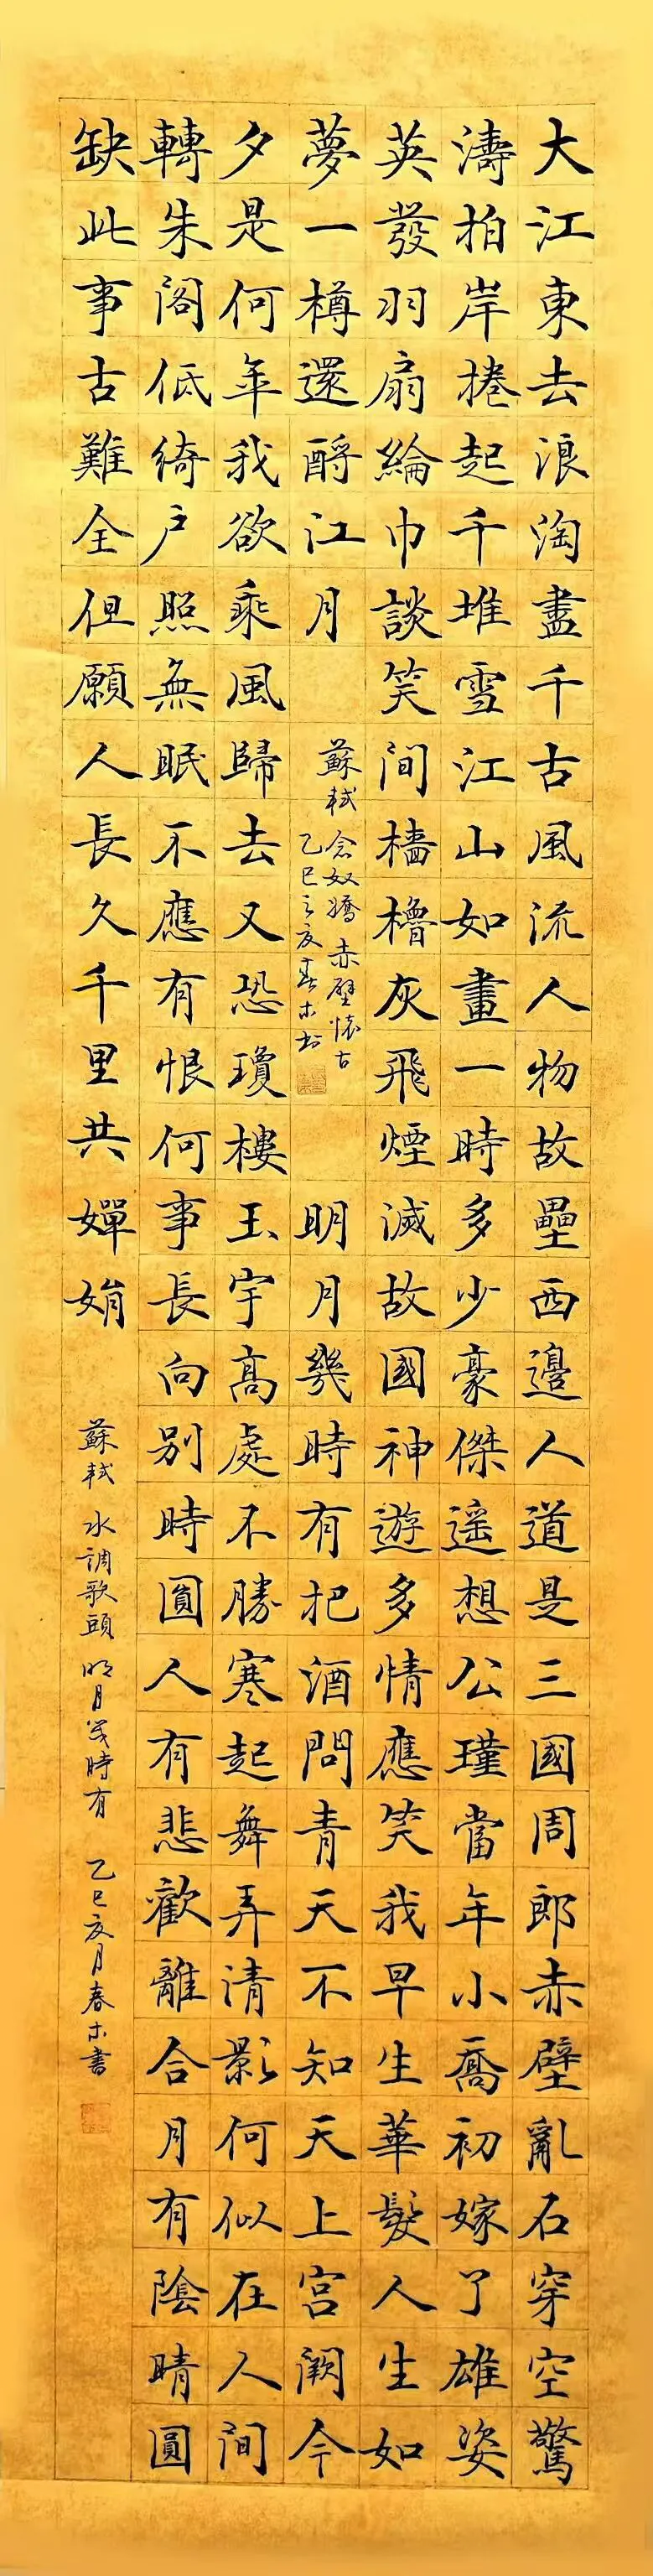 大江東去浪淘盡千古風流人物故壘西邊人道是三國周郎赤壁亂石穿空驚
濤拍岸捲起千堆雪江山如畫一時多少豪傑遥想公瑾當年小喬初嫁了雄姿
英發羽扇綸巾談笑間檣櫓灰飛煙滅故國神遊多情應笑我早生華髮人生如
夢一樽還酹江月
蘇軾 念奴嬌 赤壁懷古
乙巳之亥春木書
明月幾時有把酒問青天不知天上宫闕今
夕是何年我欲乘風歸去又恐瓊樓玉宇高處不勝寒起舞弄清影何似在人間
轉朱阁低綺户照無眠不應有恨何事長向别時圓人有悲歡離合月有陰晴圓
缺此事古難全但願人長久千里共嬋娟
蘇軾 水調歌頭 明月幾時有 乙巳亥月春木書